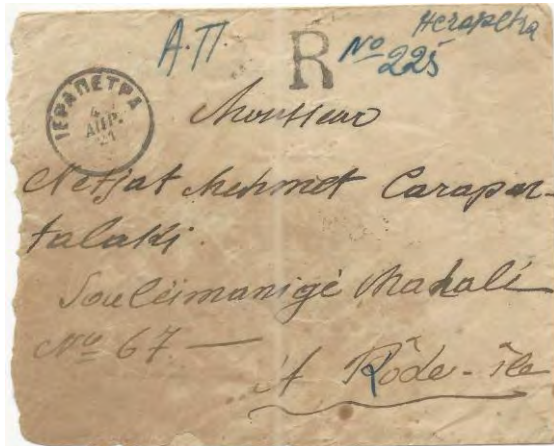 Α.Π.
R
Hierapetra
Nº 225
ΙΕΡΑΠΕΤΡΑ
4
ΑΠΡ.
21
Monsieur
Netjat Mehmet Carapa-
talaki.
Souleimanigé Mahalé
Nº 67 —
A Rôde-île